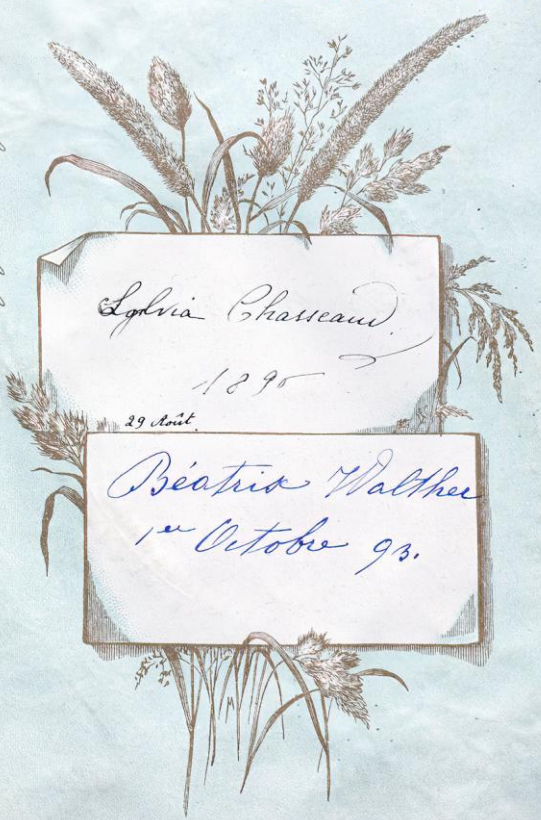 Sylvia Chasseaud.
1890
29 Août
Béatrix Walther
1er Octobre 93.